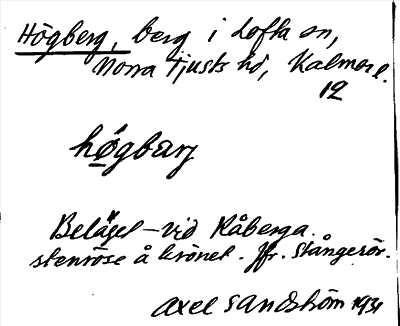 Högberg, berg i Lofta sn,
Norra Tjusts hd, Kalmar l.
12
högbarj
Beläget vid Råberga.
stenröse å krönet. Jfr. Stångerör.
Axel Sandström 1931